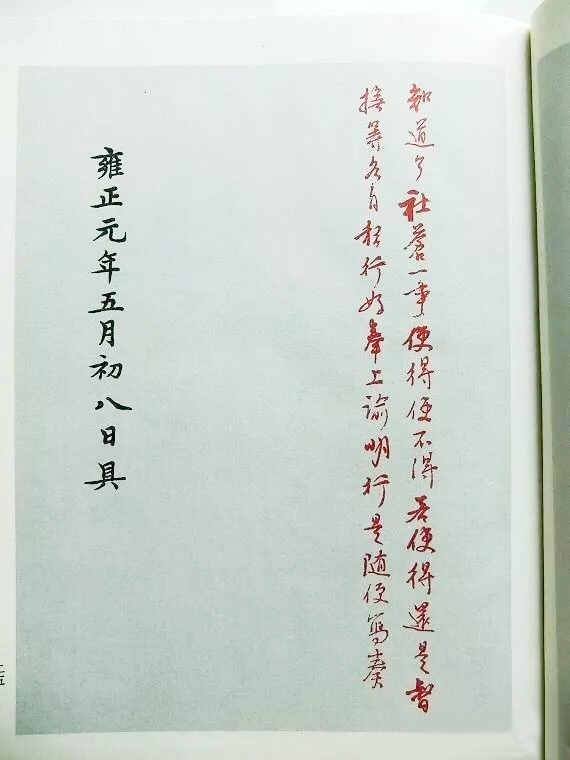 知道了社蒼一事使得使不得若使得還是督
撫等各自私行好奉上諭明行是隨便寫奏
雍正元年五月初八日具